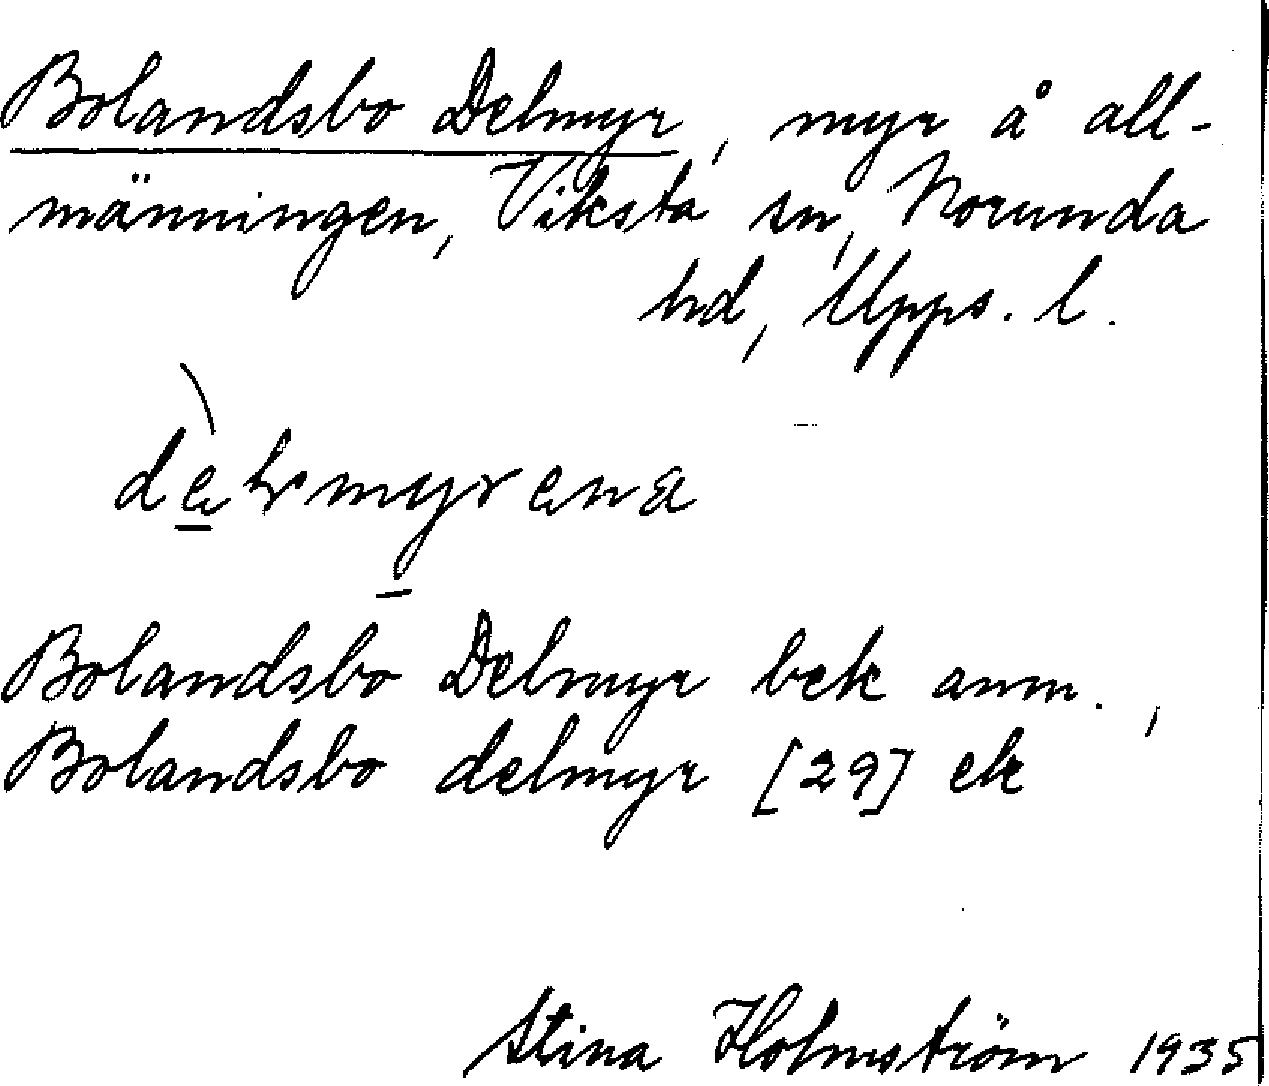 Bolandsbo Delmyr, myr å all-
männingen, Viksta sn, Norunda
hd, Upps. l.
Bolandsbo Delmyr bek anm.,
Bolandsbo delmyr [29] ek
Stina Holmström 1935